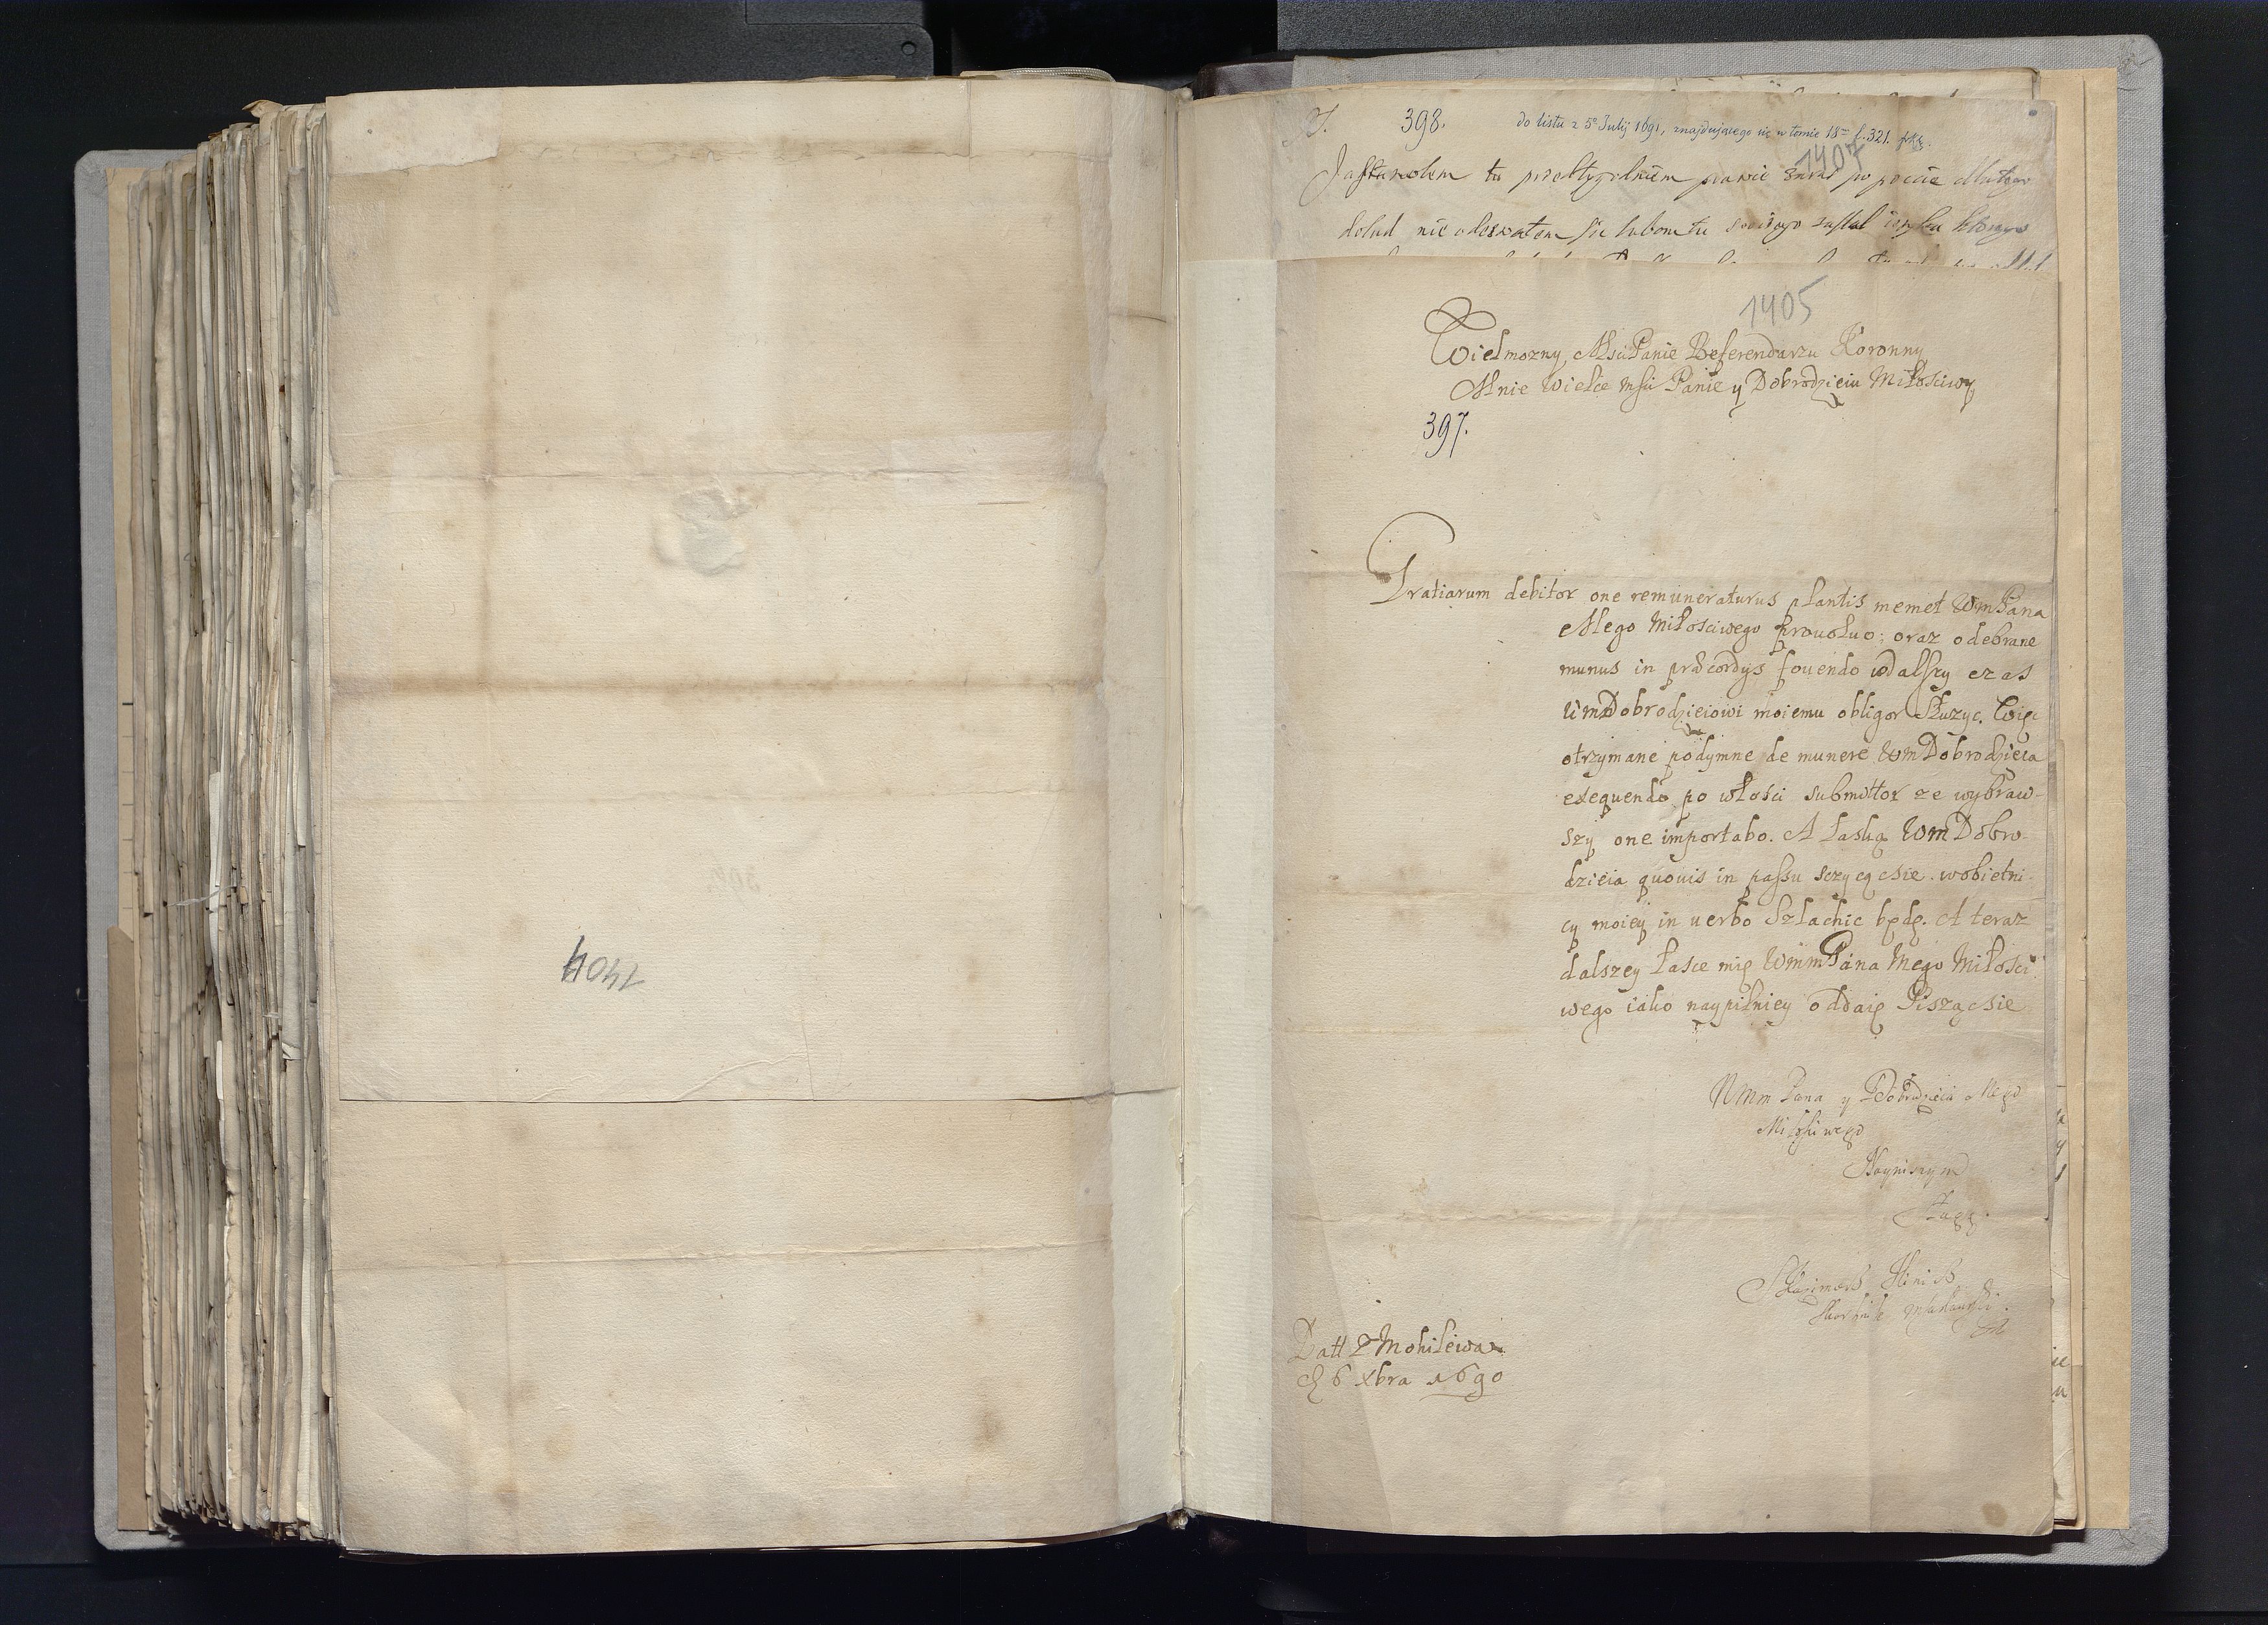 1404
398.
do listu z 5º Julij 1691, znajdującego się w tomie 18ᵐ f. 321.
1407
tu prawie zaraz po poczcie dlatego
dotud nie odezwałem się lubom tu zastał
1405
Wielmozny Msci Panie Referendarzu Koronny
Mnie Wielce Msci Panie y Dobrodzieiu Miłosciwy
397.
Gratiarum debitor one remuneraturus plantis memet WmPana
Mego Miłosciwego prouoluo; oraz odebrane
munus in præcordys fouendo wdalszy czas
WmDobrodzieiowi moiemu obligor Słuzyc. Więc
otrzymane podymne de munere WmDobrodzieia
exequendo po włosci submittor ze wybraw-
szy one importabo. A łaską WmDobro-
dzieia quouis in passu sczycącsie wobietni-
cy moiey in uerbo Szlachic będę. A teraz
dalszey łasce mię WmmPana Mego Miłosci-
wego iako naypilniey oddaię Piszącsie
Wmm Pana y Dobrodzieia Mego
Miłosciwego
Nayniszym
Sługą
Datt z Mohilewa
d 6 Xbra 1690